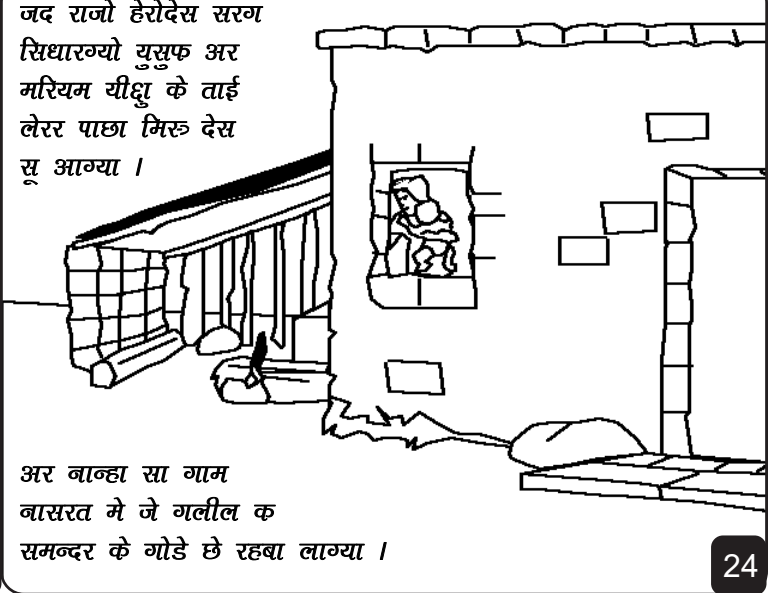 जद राजो हेरोदेस सरग
सिधारग्यो युसुफ अर
मरियम यीक्षु के ताई
लेरर पाछा मिस्त्र देस
सू आग्या ।
अर नान्हा सा गाम
नासरत मे जे गलील क
समन्दर के गोडे छे रहबा लाग्या ।
24